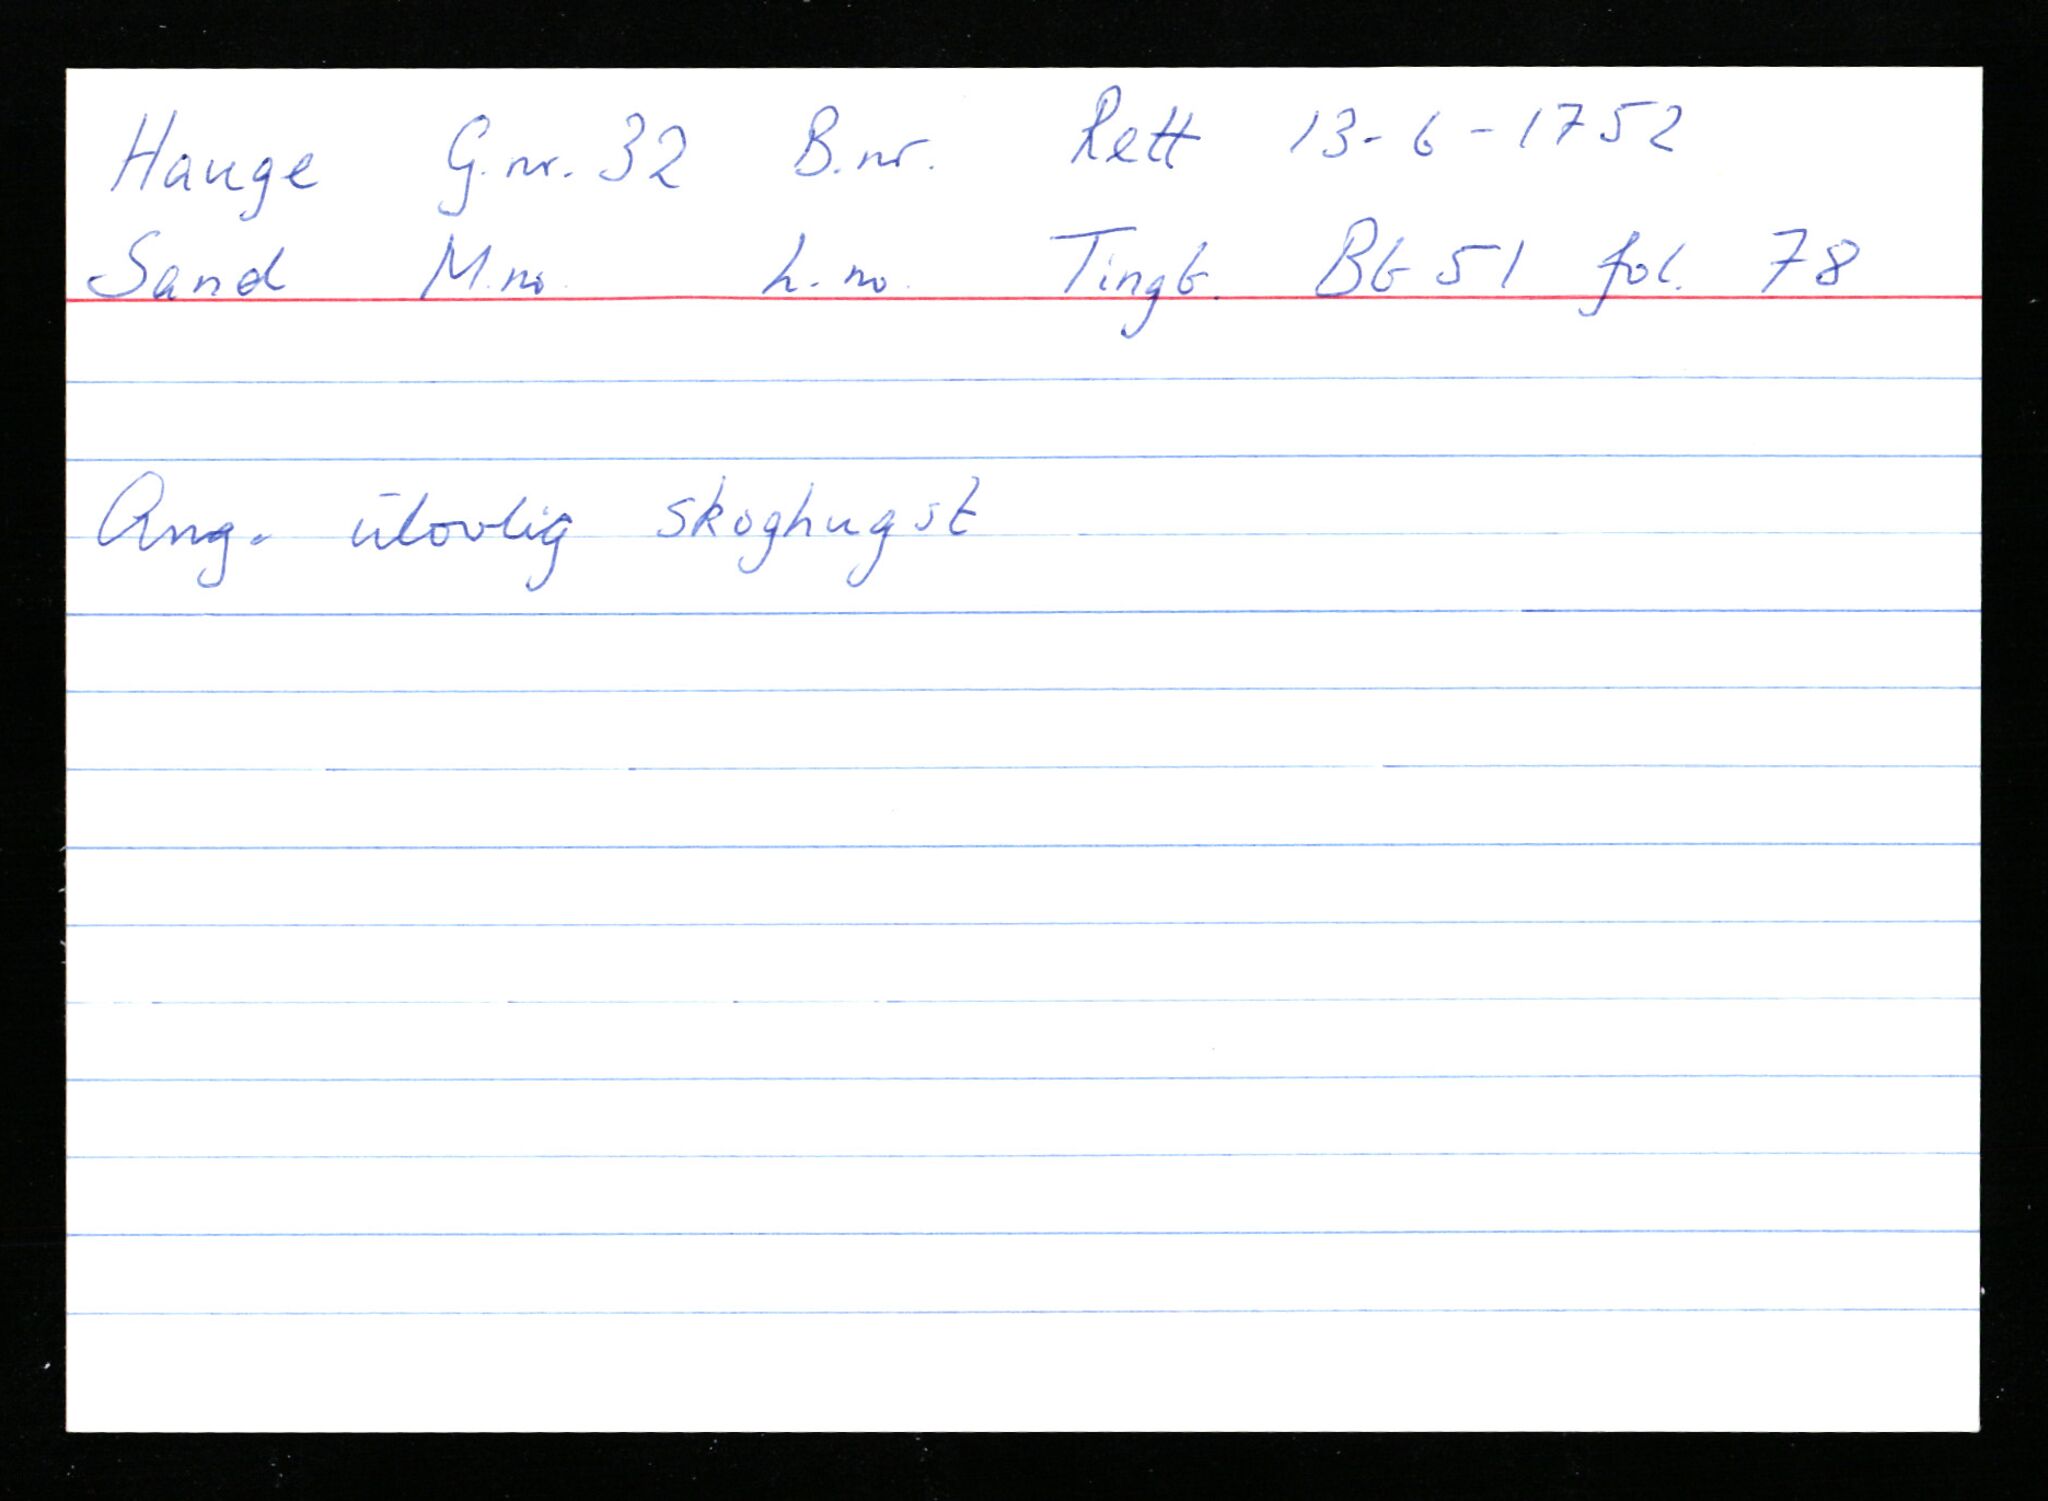 Hauge G.nr. 32 B.nr. Rett 13-6-1752
Sand M.no. L.no. Tingb. Bb 51 fol. 78
Ang. ulovlig skoghugst